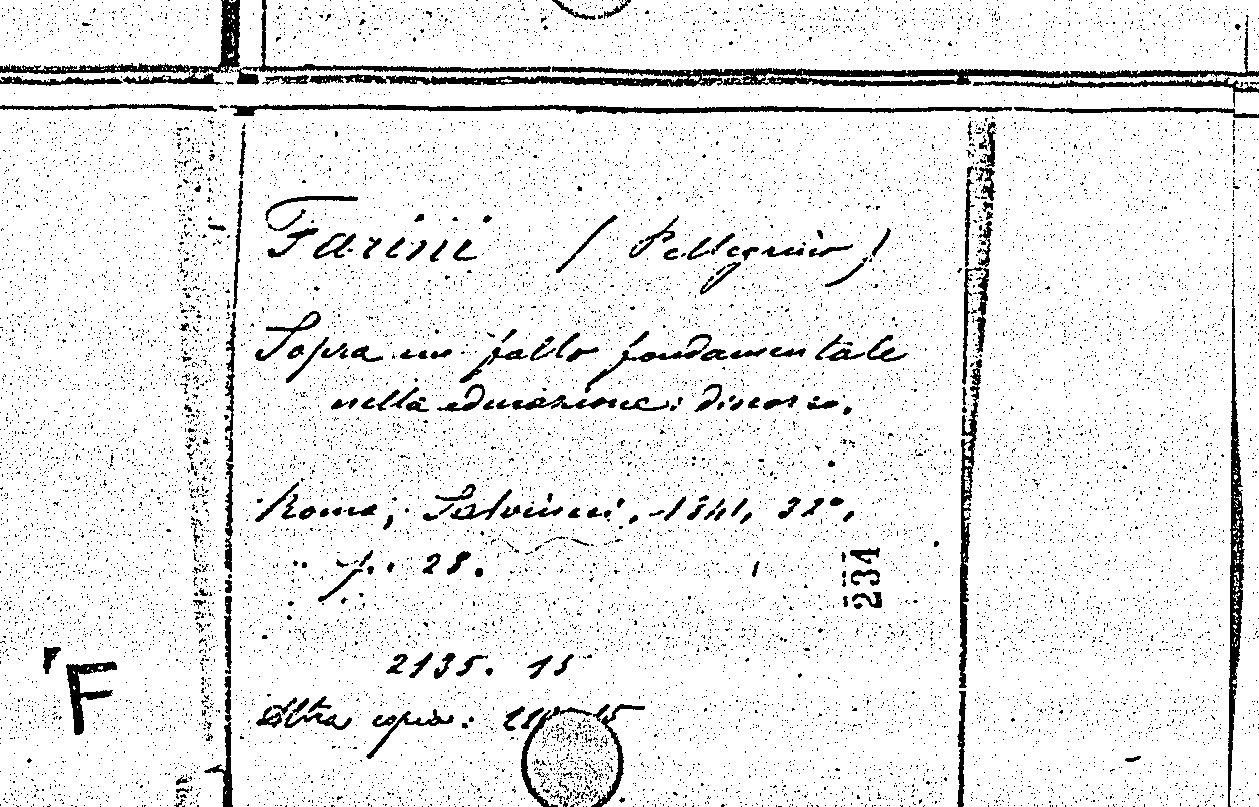 Farini (Pellegrino)
Sopra un fallo fondamentale
nella educazione: discorso.
Roma, Salviucci, 1841, 32°,
p. 28.
234
2135. 15
Altra copia: 15
F